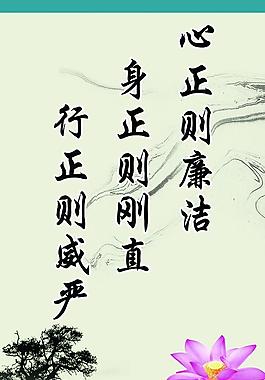 心正则廉洁
身正则刚直
行正则威严